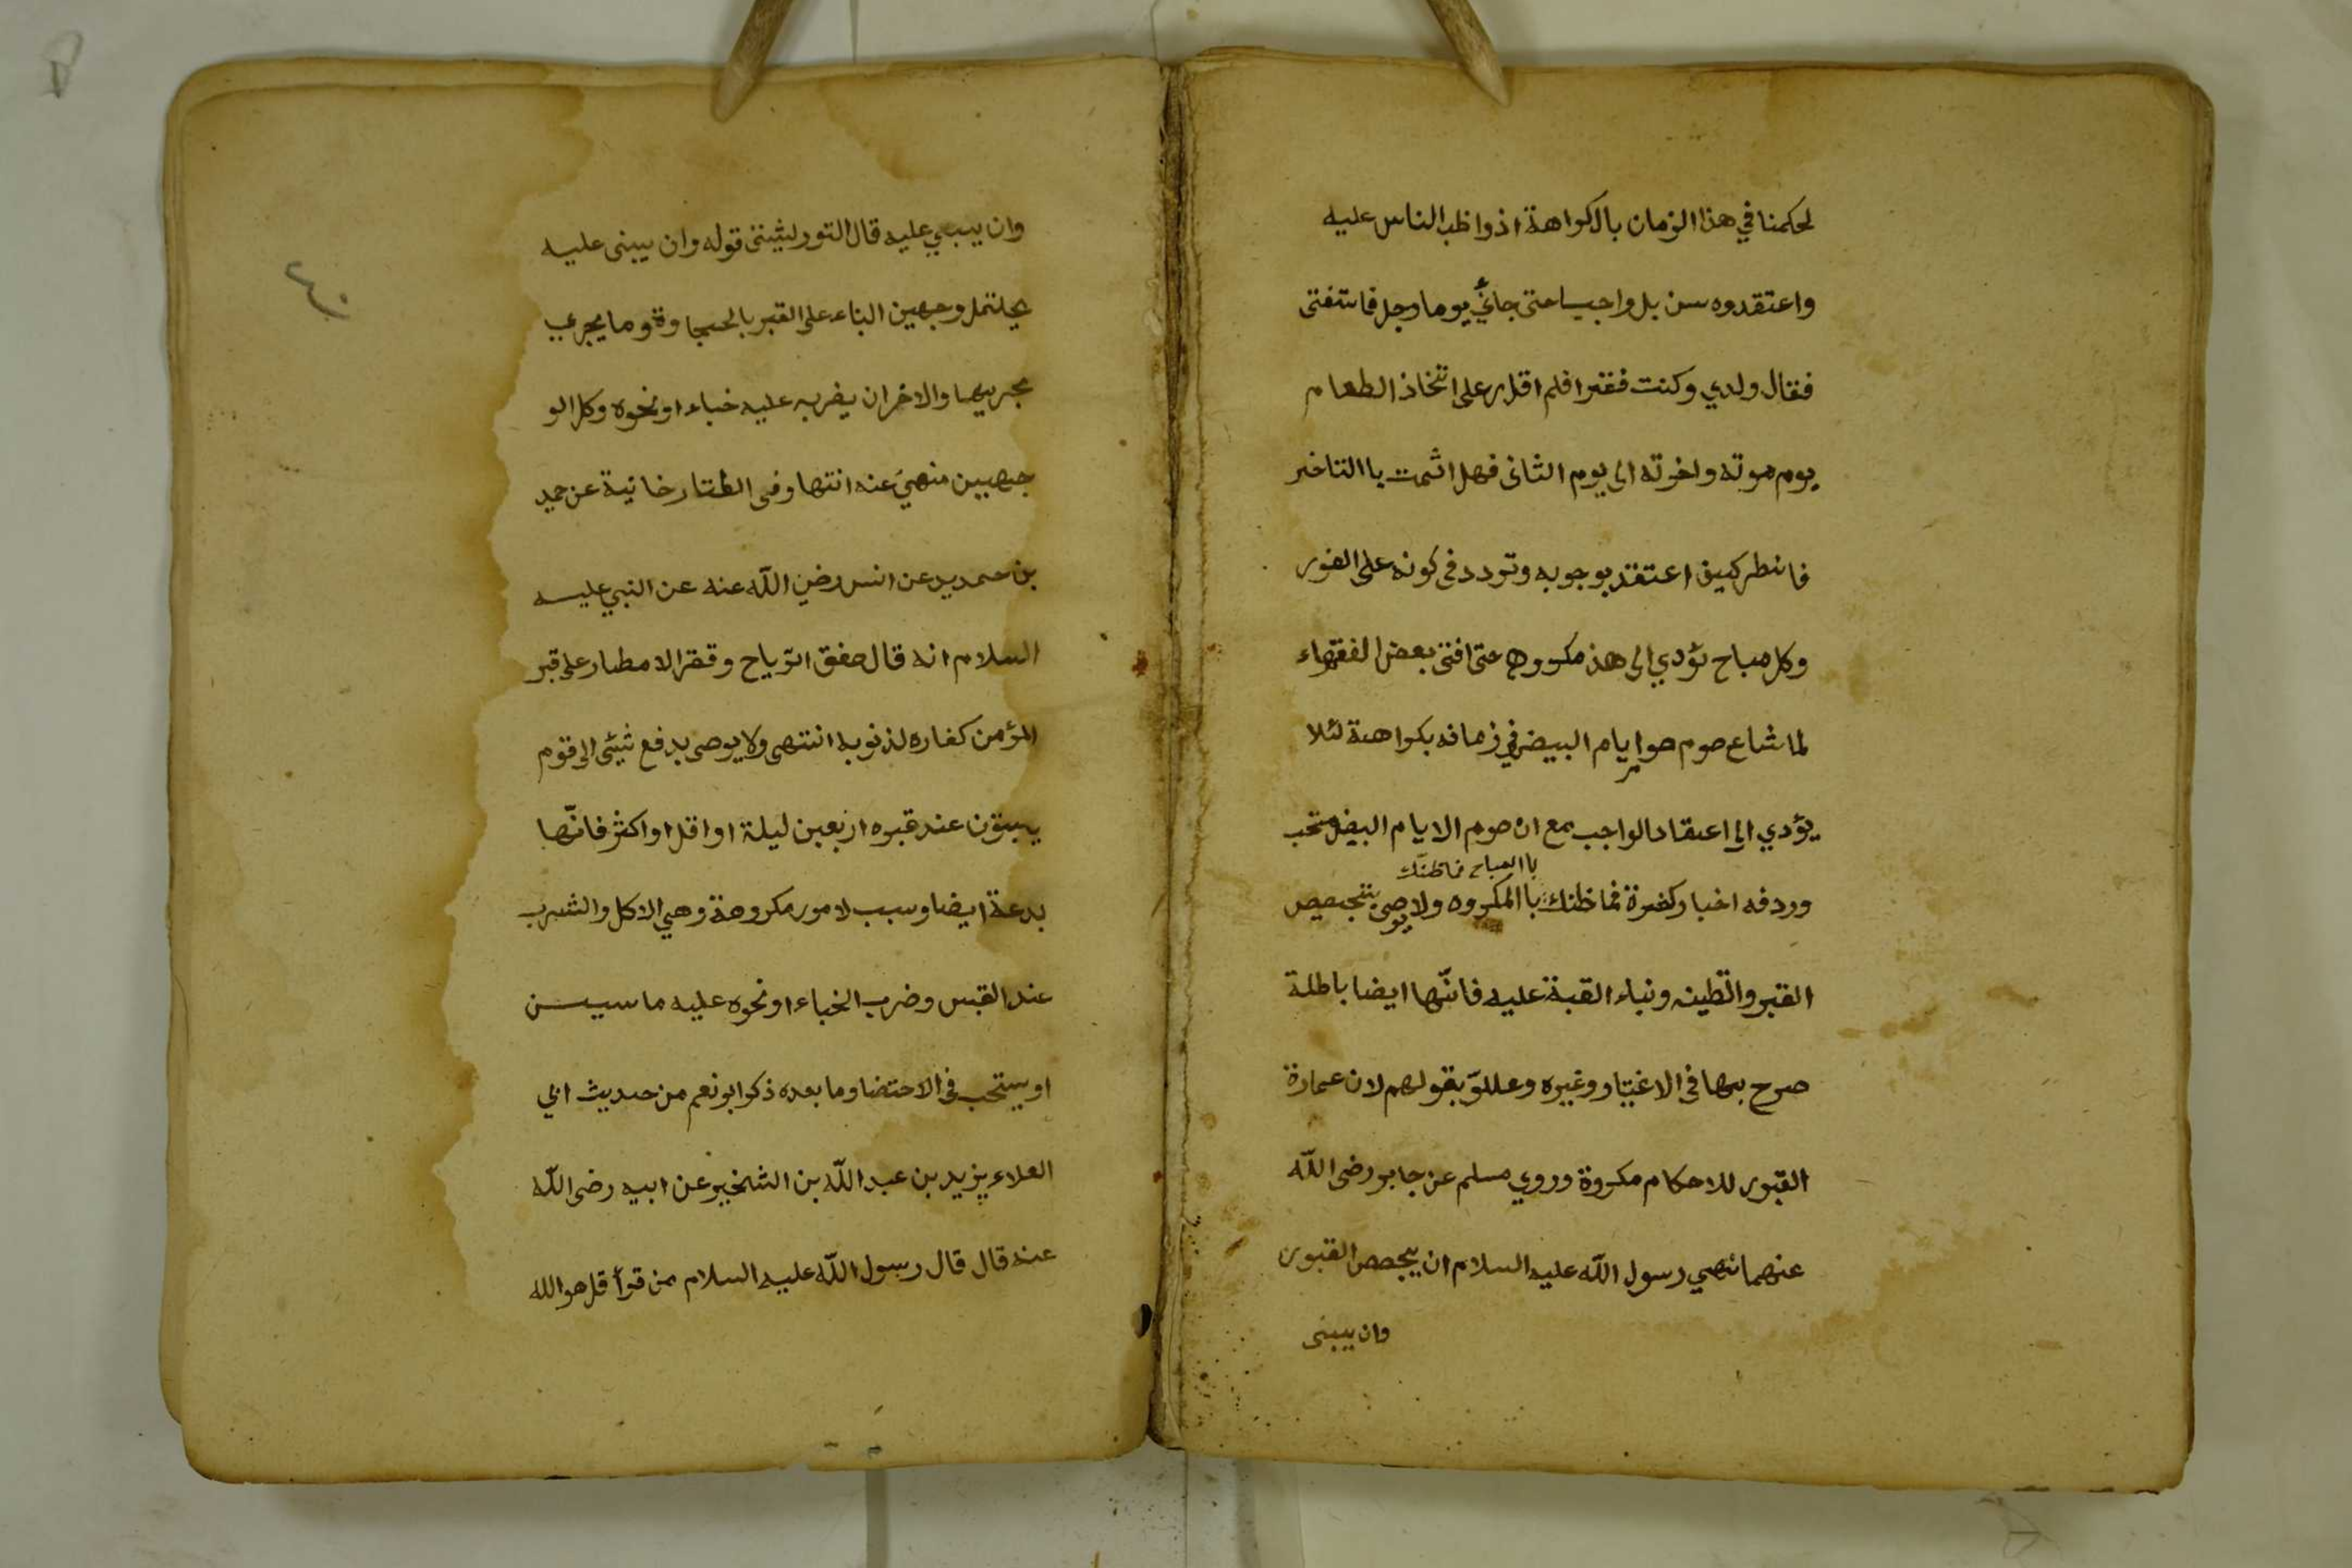 لحكمنا في هذا الزمان بالكراهة اذ واظب الناس عليه
واعتقدوه سنن بل واجبا حتى جائني يوما رجل فاستفتى
فقال ولدي وكنت فقيرا فلم اقدر على اتخاذ الطعام
يوم موته واخرته الى يوم الثانى فهل اثمت باالتاخير
فانظر كيف اعتقد بوجوبه وتردد فى كونه على الفور
وكل مباح يؤدي الى هذ مكروه حتى افتى بعض الفقهاء
لما شاع صوم صوم ايام البيض في زمانه بكراهة لئلا
يؤدي الى اعتقاد الواجب مع ان صوم الايام البيض مستحب
باالمباح فما ظنّك
ورد فه اخبار كثيرة فما ظنك باالمكروه ولا يوصى بتجصيص
القبر والتطين وبناء القبة عليه فانّها ايضا باطلة
صرح بها فى الاختيار وغيره وعللو بقولهم لان عمارة
القبور للاحكام مكروة وروي مسلم عن جابر رضى اللّه
عنهما نهي رسول اللّه عليه السلام ان يجصص القبور
وان يبنى
٤٠
وان يبني عليه قال التوربشتى قوله وان يبنى عليه
يحتمل وجهين البناء على القبر بالحجاوة وما يجري
مجريها والاخر ان يضرب عليه خباء او نحوه وكل الو
جهيين منهي عنه انتها وفى التتارخانية عن حميد
بن حمديد عن انس رضي اللّه عنه عن النبي عليه
السلام انه قال صفق الرّياح وقطر الامطار على قبر
المؤمن كفاره لذنوبه انتهى ولا يوصى بدفع شيئى الى قوم
يبيتون عند قبره اربعين ليلة او اقل او اكثر فانّها
بدعة ايضا وسبب لامور مكروهة وهي الاكل والشرب
عند القبر وضرب الخباء او نحوه عليه ما سيسن
او يستحب فى الاحتضار وما بعده ذكر ابو نعم من حديث ابي
العلاء يزيد بن عبد اللّه بن الشخير عن ابيه رضى اللّه
عنه قال قال رسول اللّه عليه السلام من قرأ قل هو الله